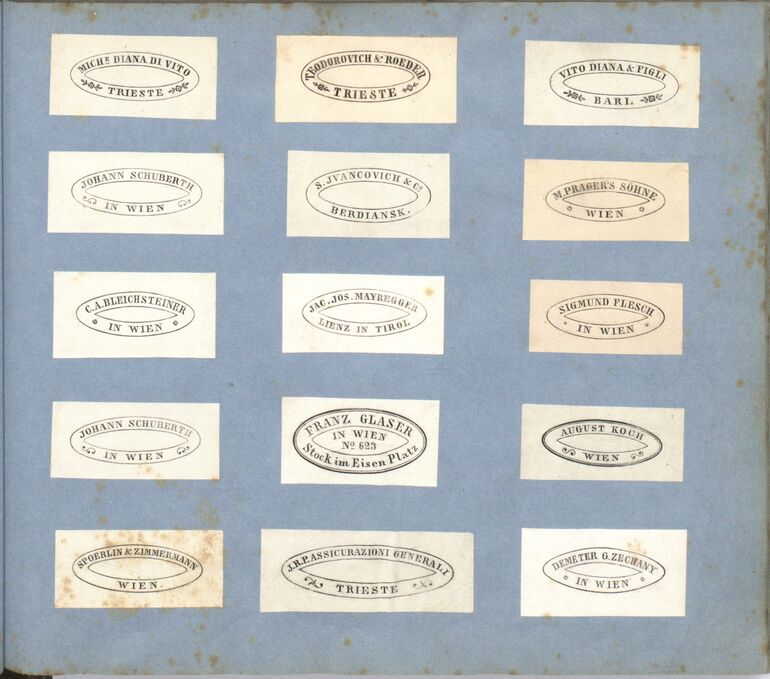 MICHE DIANA DI VITO
TRIESTE
TEODOROVICH & ROEDER
TRIESTE
VITO DIANA & FIGLI
BARI.
JOHANN SCHUBERTH
IN WIEN
S. JVANCOVICH & Co
BERDIANSK.
M. PRAGER'S SÖHNE
WIEN
C. A. BLEICHSTEINER
IN WIEN
JAC. JOS. MAYREGGER
LIENZ IN TIROL
SIGMUND FLESCH
IN WIEN
JOHANN SCHUBERTH
IN WIEN
FRANZ GLASER
IN WIEN
No 623
Stock im Eisen Platz
AUGUST KOCH
WIEN
SPOERLIN & ZIMMERMANN
WIEN.
J.R.P. ASSICURAZIONI GENERALI
TRIESTE
DEMETER G. ZECHANY
IN WIEN